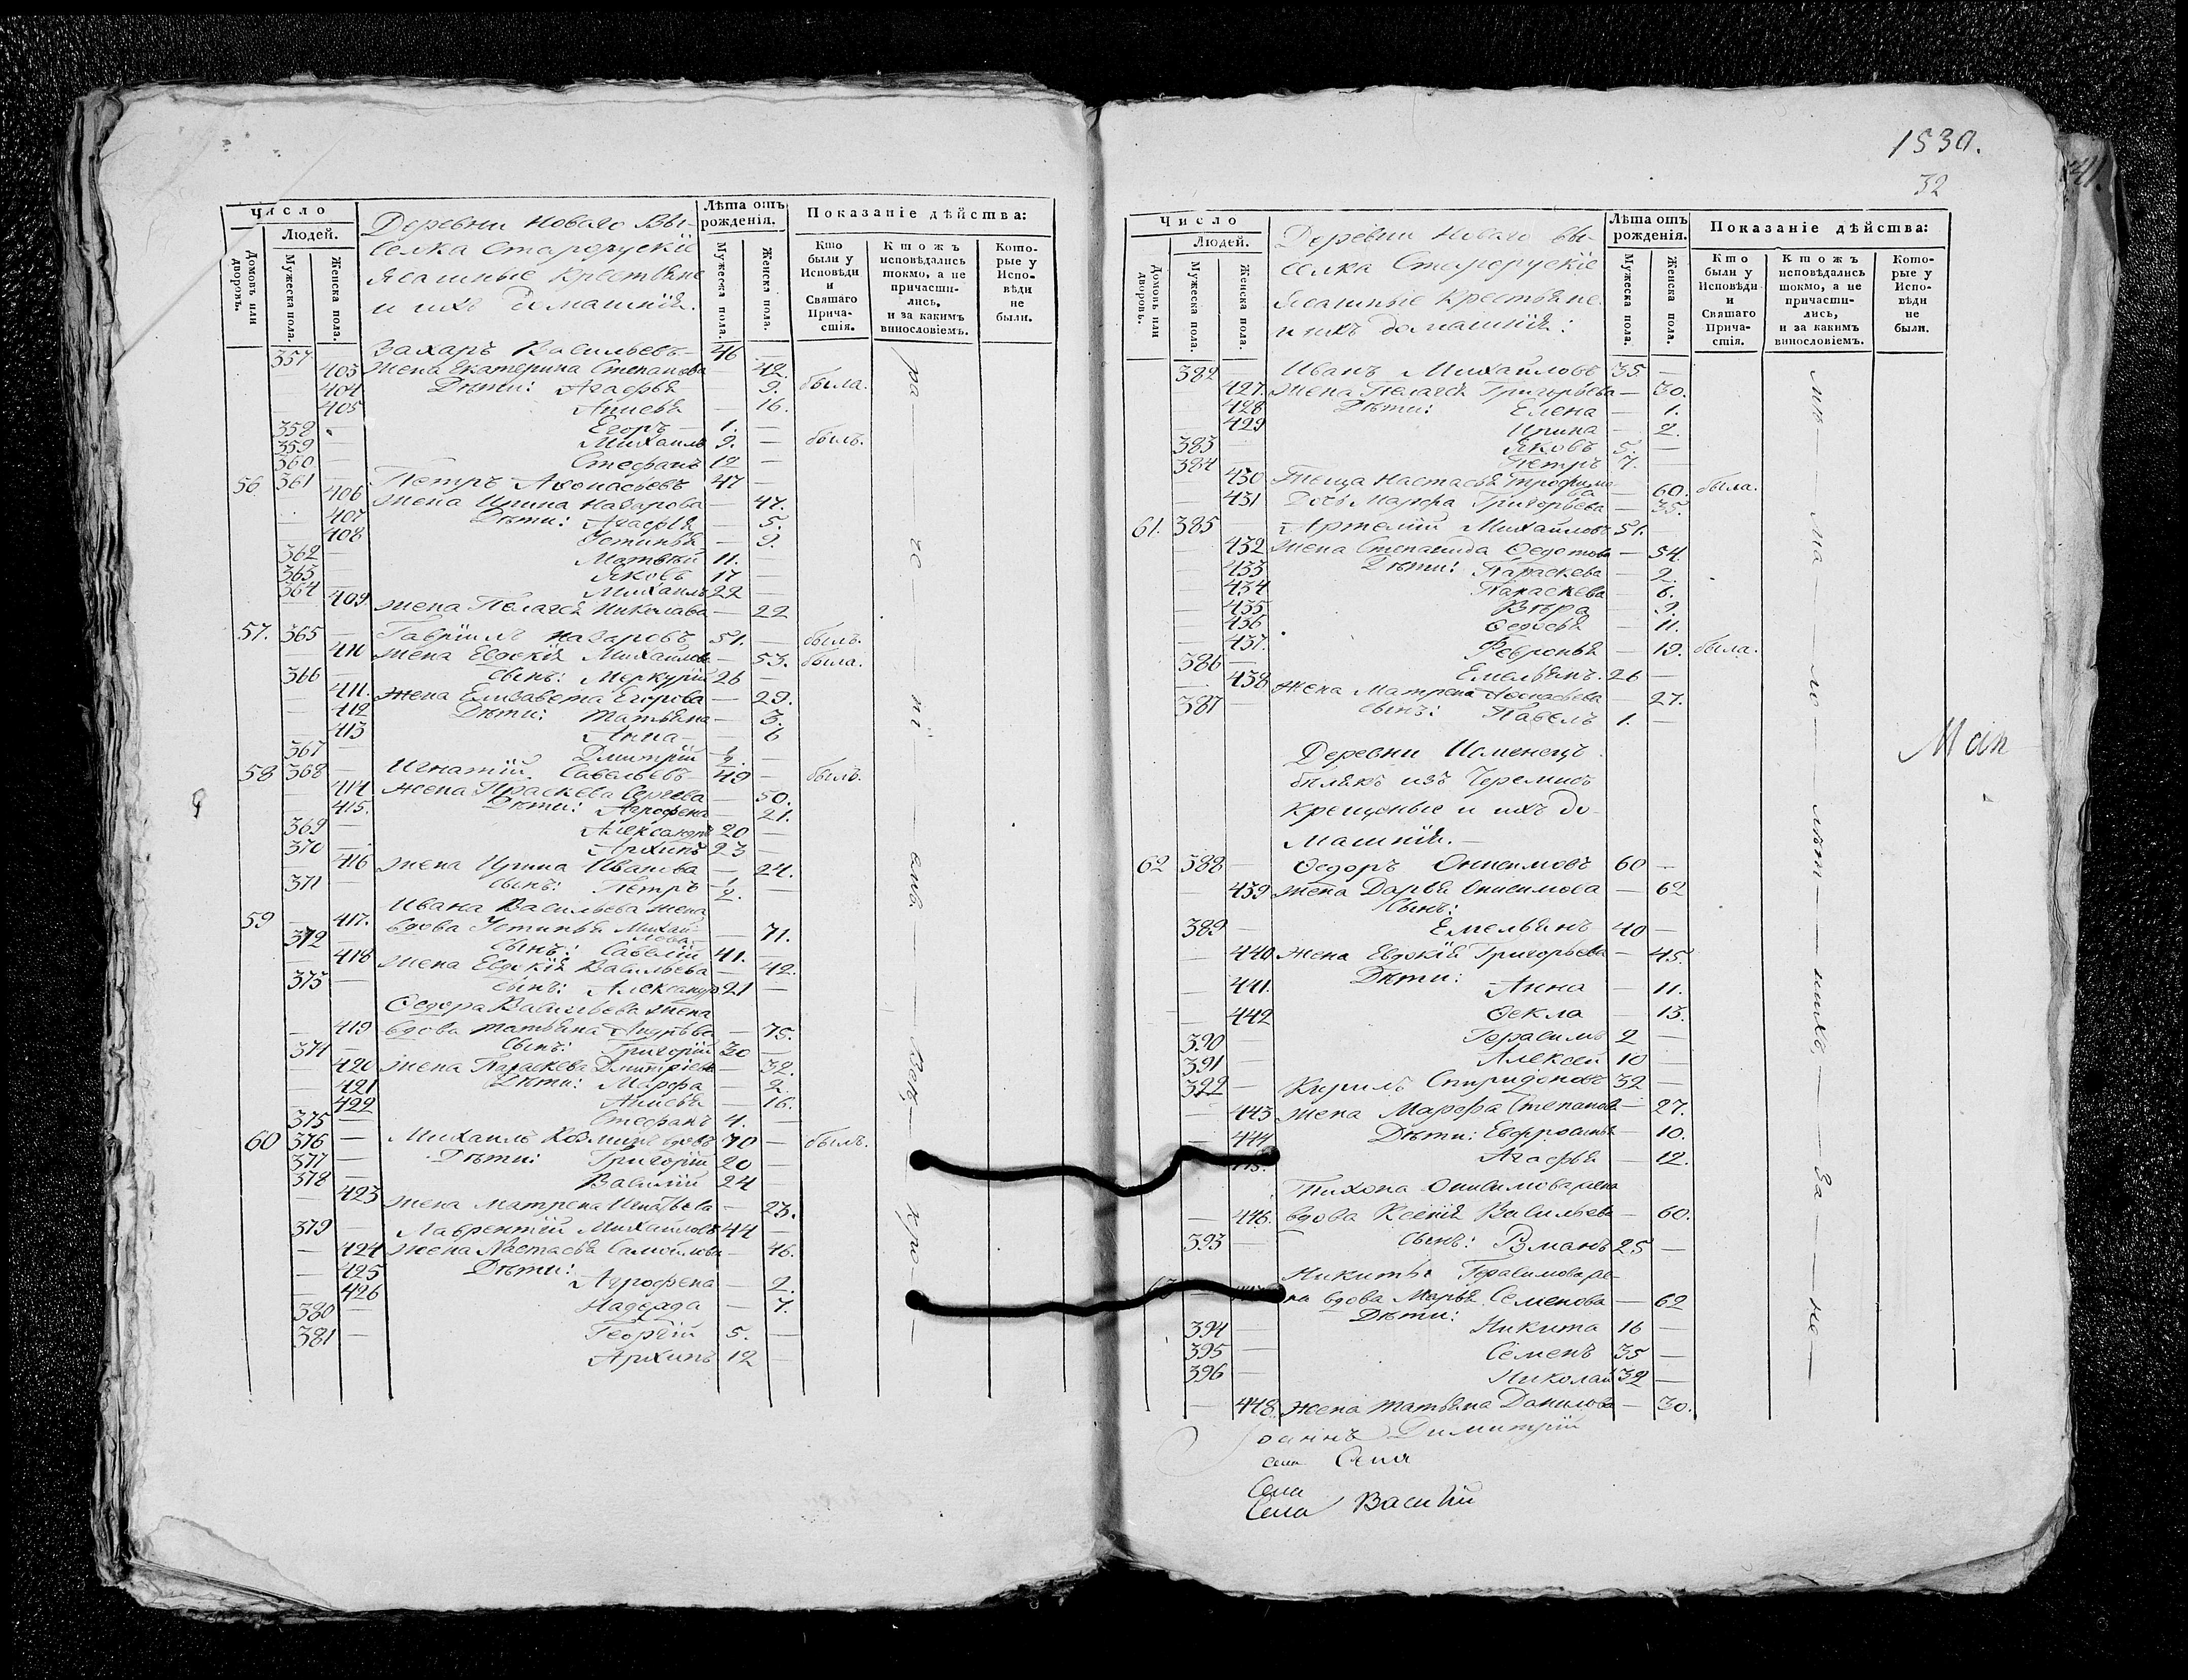 Число
Людей.
Домовъ или дворовъ.
Мужеска пола.
Женска пола.
Деревни Новаго Вы-
селка Старорускïе
Ясашные Крестьяне
и ихъ домашнïя.
Лѣта отъ рожденія.
Мужеска пола.
Женска пола.
Показаніе дѣйства:
Кто были у Исповѣди и Святаго Причастія.
Кто жъ исповѣдались токмо, а не причастились, и за какимъ винословіемъ.
Которые у Исповѣди не были.
357 Захаръ Васильевъ 46
403 жена Екатерина Степанова 42.
404 Дѣти: Агафья 9. была.
405 Анисья 16.
358 Егоръ 1.
359 Михаилъ 9. былъ.
360 Стефанъ 12
56 361 Петръ Афонасьевъ 47
406 жена Ирина Назарова 47.
407 Дѣти: Агафья 5.
408 Устинья 9.
362 Матвѣй 11.
363 Яковъ 17
364 Михаилъ 22
409 жена Пелагея Николаева 22
57. 365 Гаврïилъ Назаровъ 51. былъ.
410 жена Евдокïя Михайлова 53. была.
366 сынъ: Меркурïй 26
411. жена Елизавета Егорова 29.
412 Дѣти: Татьяна 3.
413 Анна 6
367 Дмитрïй
58 368 Игнатïй Савельевъ 49 былъ.
414 жена Праскева Сергева 50.
415. Дѣти: Агрофена 21.
369 Александръ 20
370 Архипъ 23
416 жена Ирина Иванова 24.
371 сынъ: Петръ
Ивана Васильева жена
59 417. вдова Устинья Михай-
лова 71.
372 сынъ: Савелïй 41.
418 жена Евдокïя Васильева 42.
373 сынъ: Александръ 21
Ѳедора Васильева жена
419 вдова Татьяна Андрѣева 75.
374 сынъ: Григорïй 30
420 жена Параскева Дмитрïева 32.
421 Дѣти: Марфа 2.
422 Анисья 16.
375 Стефанъ 4.
60 376 Михаилъ 70 былъ.
377 Дѣти: Григорïй 20
378 Василïй 24
423 жена Матрена Игнатьева 23.
379 Лаврентïй Михайловъ 44
424 жена Настасья Самойлова 46.
425 Дѣти: Агрофена 2.
426 Надежда 7.
380 Георгïй 5.
381 Архипъ 12
ра — че — нï — емъ. — Веѣ, — кро —
1530.
32
41.
Число
Людей.
Домовъ или дворовъ.
Мужеска пола.
Женска пола.
Деревни Новаго Вы-
селка Старорускïе
Ясашные Крестьяне
и ихъ домашнïя:
Лѣта отъ рожденія.
Мужеска пола.
Женска пола.
Показаніе дѣйства:
Кто были у Исповѣди и Святаго Причастія.
Кто жъ исповѣдались токмо, а не причастились, и за какимъ винословіемъ.
Которые у Исповѣди не были.
382 Иванъ Михайловъ 35.
427. жена Пелагея Григорьева 30.
428 Дѣти: Елена 1.
429 Ирина 2.
383 Яковъ 5.
384 Петръ 7.
430 Теща Настасья Трофимо-
ва 60. была.
431 Дочь Марфа Григорьева 35.
61. 385 Артемïй Михайловъ 51.
432 жена Степанида Ѳедотова 54.
433 Дѣти: Параскева 2.
434 Параскева 6.
435 Вѣра 9.
436 Ѳедосья 11.
437. Февронья 19. была.
386 Емельянъ. 26
438 жена Матрена Афонасьева 27.
387 сынъ: Павелъ 1.
Деревни
изъ Черемисъ
крещеные и ихъ до-
машнïя.
62 388 Ѳедоръ Онисимовъ 60
439 жена Дарья Онисимова 62
сынъ:
389 Емельянъ 40
440 жена Евдокïя Григорьева 45.
Дѣти:
441. Анна 11.
442 Ѳекла 13.
390 Герасимъ 2
391 Алексей 10
392 Кирилъ Спиридоновъ 32
443 жена Марфа Степанова 27.
444 Дѣти: Евфросинья 10.
445. Агафья 12.
Тихона Онисимова жена
446. вдова Ксенïя Васильева 60.
393 сынъ: Романъ 25
Никиты Герасимова же-
63 на вдова Марья Семенова 62
Дѣти:
394 Никита 16
395 Семенъ 35
396 Николай 32
448 жена Татьяна Данилова 30.
мѣ — ма — ло — лѣт — нихъ, — За — не —
Іоаннъ Димитрïй
села
Села
Села Василïй